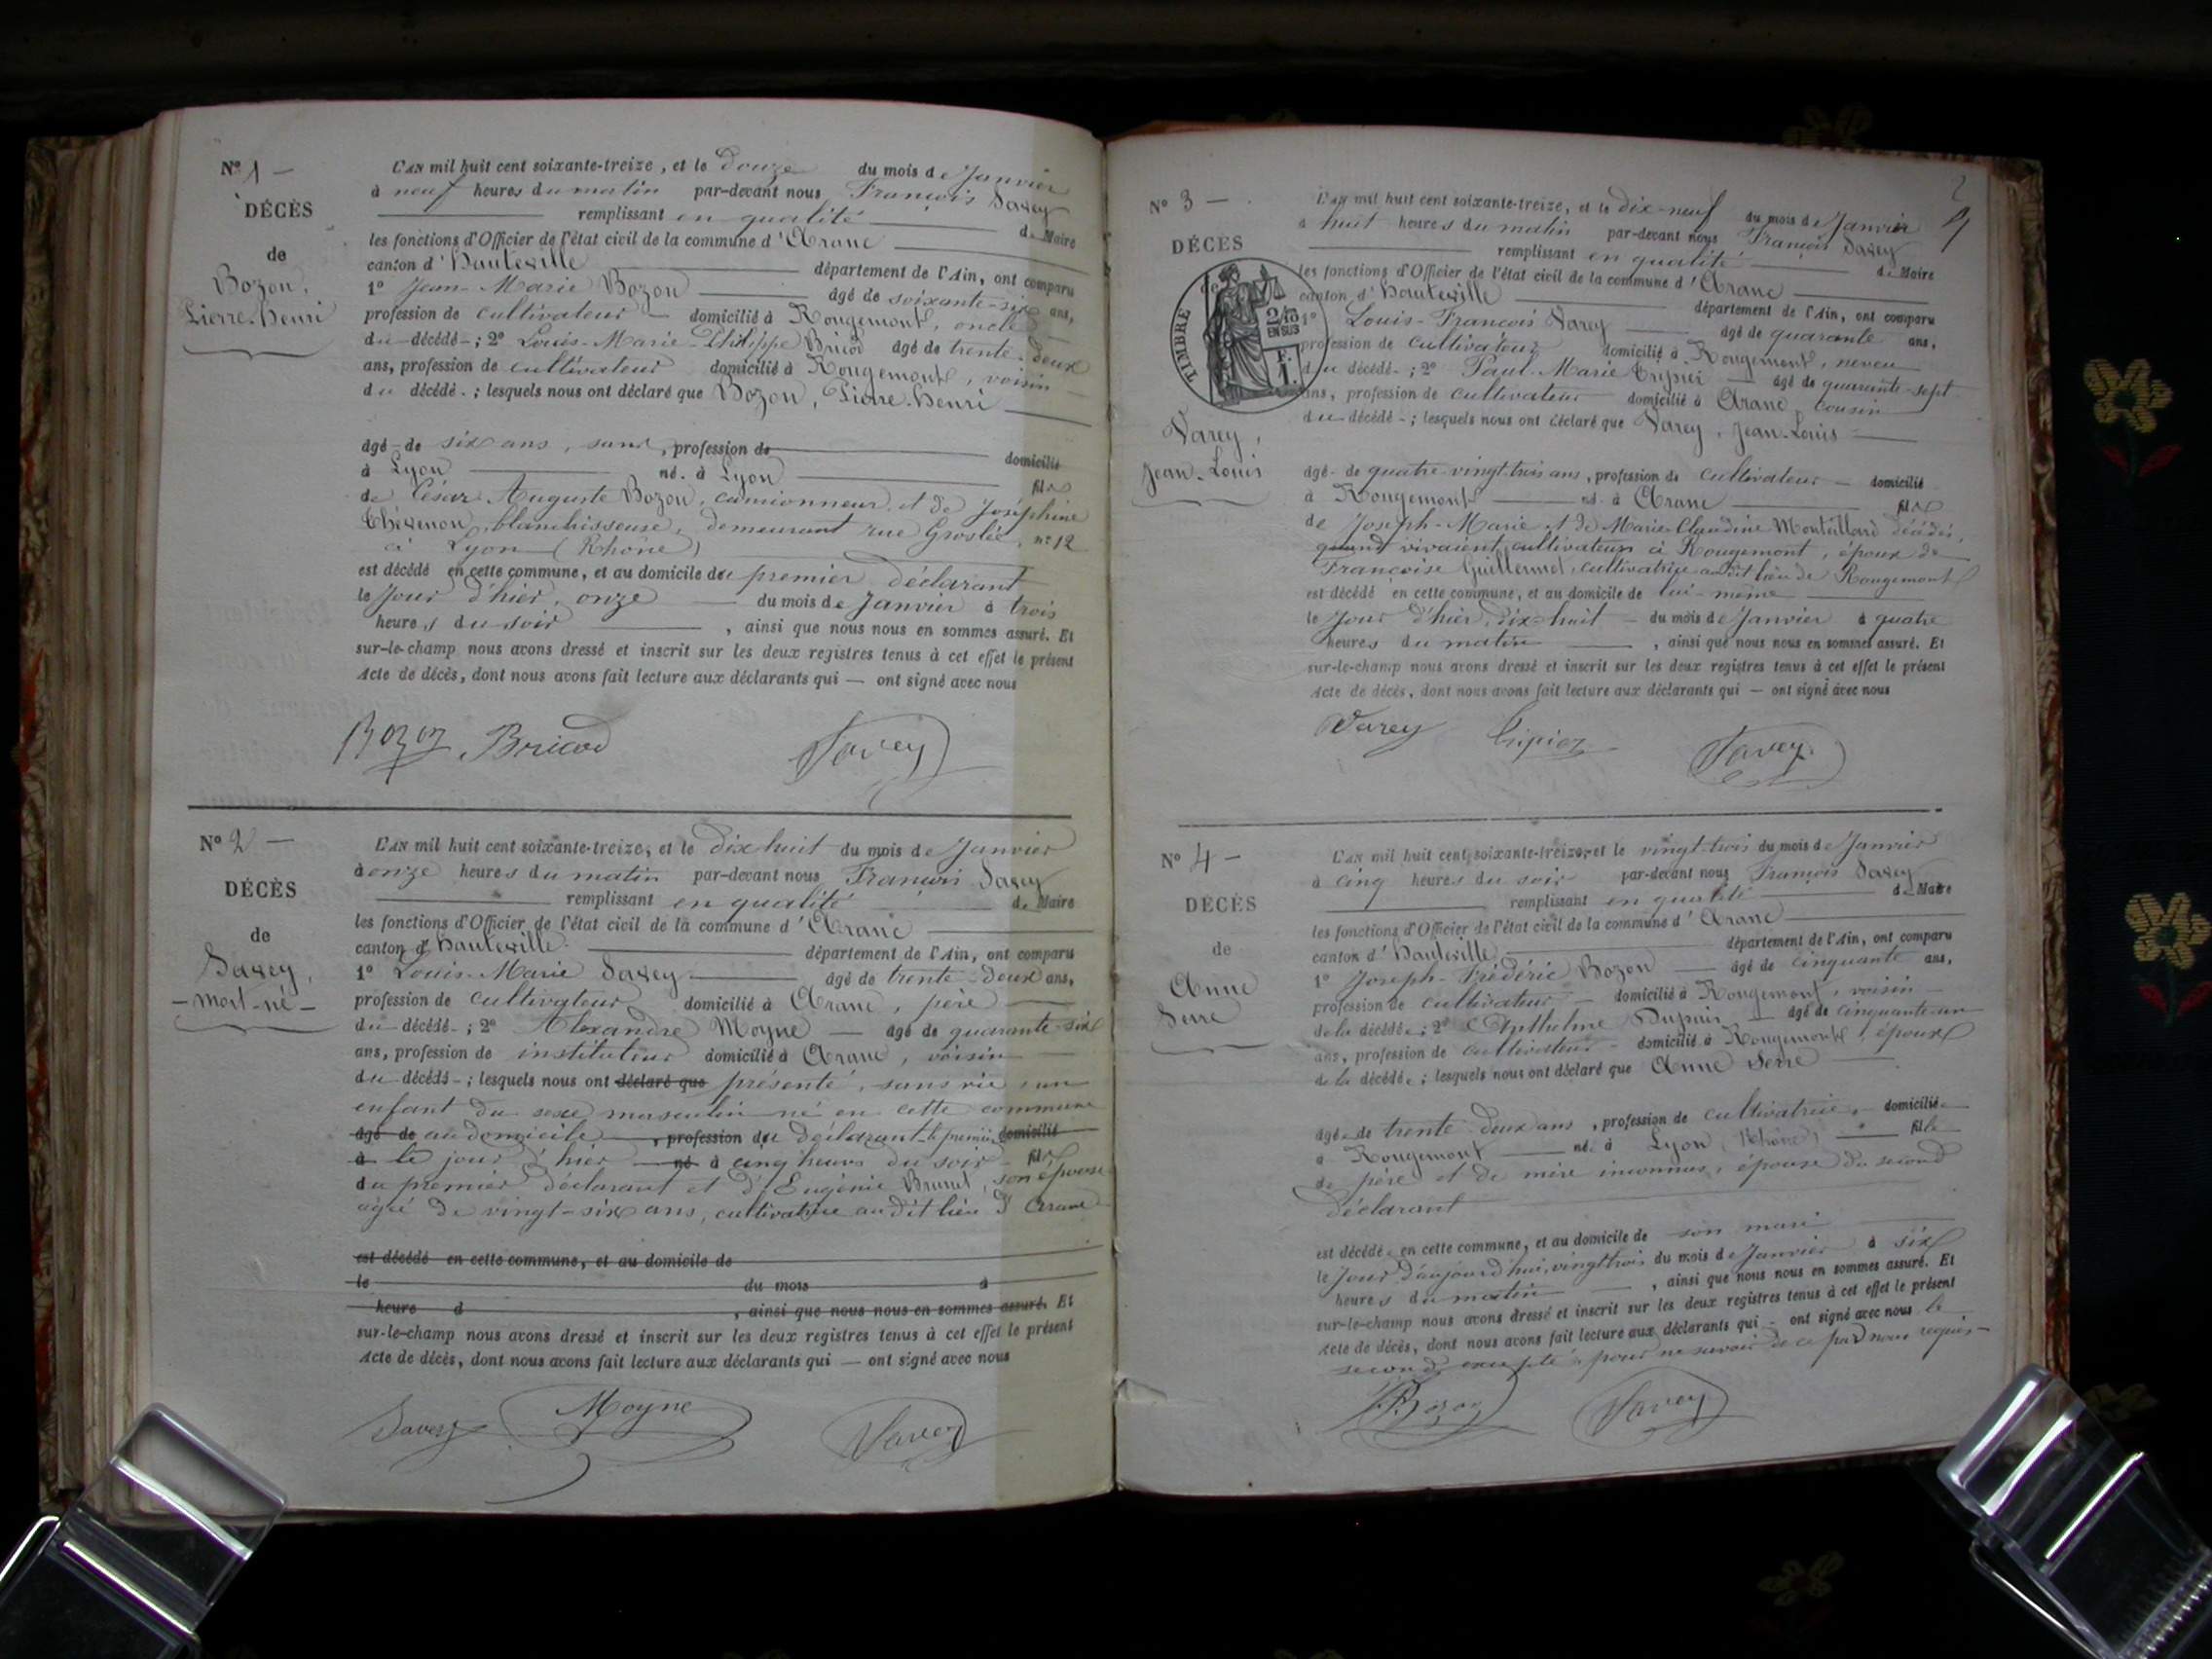 N° 1 —
DÉCÈS
de
Bozon,
Pierre-henri
L'AN mil huit cent soixante-treize, et le douze du mois de Janvier
à neuf heures du matin par-devant nous François Savey
remplissant en qualité de Maire
les fonctions d'Officier de l'état civil de la commune d'Aranc
canton d'hauteville département de l'Ain, ont comparu
1° Jean-Marie Bozon âgé de soixante-six ans,
profession de cultivateur domicilié à Rougemont, oncle
du décédé ; 2° Louis-Marie-Philippe Bricod âgé de trente-deux
ans, profession de cultivateur domicilié à Rougemont, voisin
du décédé ; lesquels nous ont déclaré que Bozon, Pierre-henri
âgé de six ans, sans, profession de domicilié
à Lyon né à Lyon fils
de César Auguste Bozon, camionneur, et de Joséphine
Thévenon, blanchisseuse, demeurant rue Groslée, n° 12
à Lyon (Rhône)
est décédé en cette commune, et au domicile du premier déclarant
le Jour d'hier, onze du mois de Janvier à trois
heures du soir, ainsi que nous nous en sommes assuré. Et
sur-le-champ nous avons dressé et inscrit sur les deux registres tenus à cet effet le présent
Acte de décès, dont nous avons fait lecture aux déclarants qui — ont signé avec nous
Bozon Bricod Savey
N° 2 —
DÉCÈS
de
Savey,
— mort-né —
L'AN mil huit cent soixante-treize, et le dix huit du mois de Janvier
à onze heures du matin par-devant nous François Savey
remplissant en qualité de Maire
les fonctions d'Officier de l'état civil de la commune d'Aranc
canton d'hauteville département de l'Ain, ont comparu
1° Louis-Marie Savey âgé de trente-deux ans,
profession de cultivateur domicilié à Aranc, père
du décédé ; 2° Alexandre Moyne — âgé de quarante-six
ans, profession de instituteur domicilié à Aranc, voisin
du décédé ; lesquels nous ont déclaré que présenté, sans vie, un
enfant du sexe masculin né en cette commune
âgé de au domicile, profession du déclarant le premier domicilié
à le jour d'hier né à cinq heures du soir fils
du premier déclarant et d'Eugénie Brunet, son épouse
agée de vingt-six ans, cultivatrice au dit lieu d'Aranc
est décédé en cette commune, et au domicile de
le du mois à
heure d, ainsi que nous nous en sommes assuré. Et
sur-le-champ nous avons dressé et inscrit sur les deux registres tenus à cet effet le présent
Acte de décès, dont nous avons fait lecture aux déclarants qui — ont signé avec nous
Savey Moyne Savey
2
N° 3 —
DÉCÈS
de
TIMBRE
2/10
EN SUS
F.
1.
Varey,
Jean-Louis
L'AN mil huit cent soixante-treize, et le dix-neuf du mois de Janvier
à huit heures du matin par-devant nous François Savey
remplissant en qualité de Maire
les fonctions d'Officier de l'état civil de la commune d'Aranc
canton d'hauteville département de l'Ain, ont comparu
1° Louis-François Varey âgé de quarante ans,
profession de cultivateur domicilié à Rougemont, neveu
du décédé ; 2° Paul-Marie Tripier — âgé de quarante-sept
ans, profession de cultivateur domicilié à Aranc, cousin
du décédé ; lesquels nous ont déclaré que Varey, Jean-Louis
âgé de quatre-vingt-trois ans, profession de cultivateur — domicilié
à Rougemont né à Aranc fils
de Joseph-Marie et de Marie-Claudine Montillard décédés,
quand vivaient cultivateurs à Rougemont, époux de
Françoise Guillermet, cultivatrice au dit lieu de Rougemont
est décédé en cette commune, et au domicile de lui-même
le Jour d'hier, dix-huit — du mois de Janvier à quatre
heures du matin, ainsi que nous nous en sommes assuré. Et
sur-le-champ nous avons dressé et inscrit sur les deux registres tenus à cet effet le présent
Acte de décès, dont nous avons fait lecture aux déclarants qui — ont signé avec nous
Varey Tripier Savey
N° 4 —
DÉCÈS
de
Anne
Serre
L'AN mil huit cent soixante-treize, et le vingt-trois du mois de Janvier
à cinq heures du soir par-devant nous François Savey
remplissant en qualité de Maire
les fonctions d'Officier de l'état civil de la commune d'Aranc
canton d'hauteville département de l'Ain, ont comparu
1° Joseph-Frédéric Bozon — âgé de cinquante ans,
profession de cultivateur — domicilié à Rougemont, voisin
de la décédée ; 2° Anthelme Dupuis — âgé de cinquante-un
ans, profession de cultivateur — domicilié à Rougemont, époux
de la décédée ; lesquels nous ont déclaré que Anne Serre
âgée de trente deux ans, profession de cultivatrice, domiciliée
à Rougemont née à Lyon (Rhône) fille
de père et de mère inconnus, épouse du second
déclarant
est décédée en cette commune, et au domicile de son mari
le jour d'aujourd'hui, vingt trois du mois de Janvier à six
heures du matin, ainsi que nous nous en sommes assuré. Et
sur-le-champ nous avons dressé et inscrit sur les deux registres tenus à cet effet le présent
Acte de décès, dont nous avons fait lecture aux déclarants qui — ont signé avec nous le
second excepté, pour ne savoir de ce par nous requis —
Bozon Savey